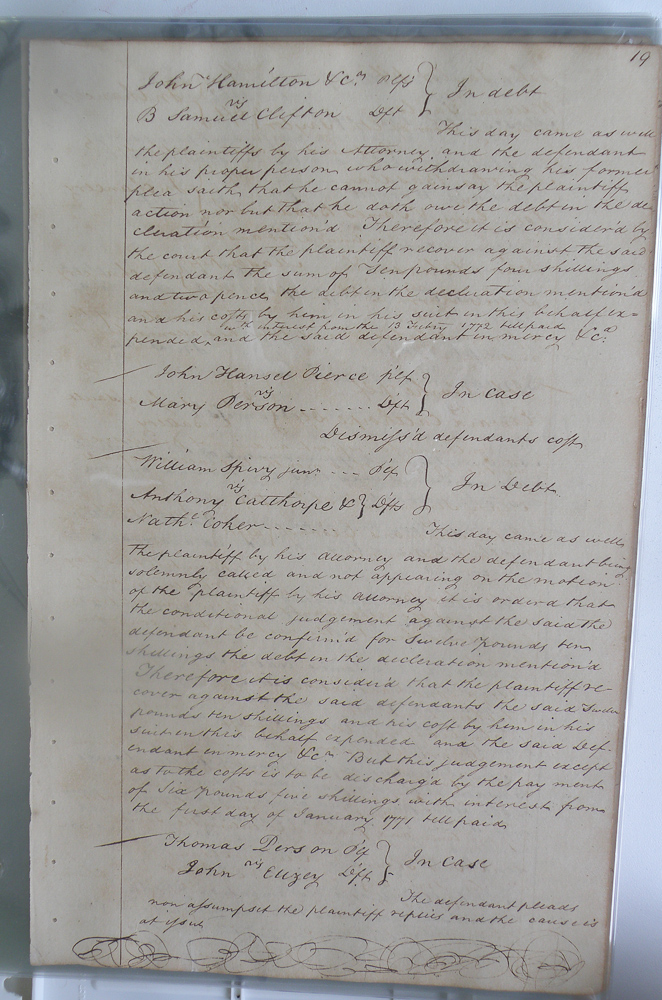 19
John Hamilton &c.ⁿ plfs } In debt
vs
B Samuel Clifton Dft
This day came as well
the plaintiffs by his Attorney and the defendant
in his proper person who withdrawing his former
plea saith that he cannot gainsay the plaintiff
action nor but that he doth owe the debt in the de
claration mention'd Therefore it is consider'd by
the court that the plaintiff recover against the said
defendant the sum of Ten pounds four shillings
and two pence the debt in the declaration mention'd
and his costs by him in his suit in this behalf ex=
wth interest from the 13 Febry 1772 till paid
pended, and the said defendant in mercy &c.a
John Hansel Pierce plf } In Case
vs
Mary Person ....... Dft
Dismiss'd defendants cost
William Spivy junr ... Plf } In Debt
vs
Anthony Calthorpe & } Dfts
Nathl Coker .......
This day came as well
the plaintiff by his attorney and the defendant being
solemnly called and not appearing on the motion
of the plaintiff by his attorney it is orderd that
the conditional judgement against the said the
defendant be confirm'd for Twelve pounds ten
shillings the debt in the declaration mention'd
Therefore it is consider'd that the plaintiff re-
cover against the said defendants the said Twelve
pounds ten shillings and his cost by him in his
suit in this behalf expended and the said Def-
endant in mercy &c.ⁿ But this judgement except
as to the costs is to be discharg'd by the pay ment
of Six pounds five shillings with interest from
the first day of January 1771 till paid
Thomas Person Plf } In Case
vs
John Dft
The defendant pleads
non assumpset the plaintiff replies and the cause is
at issue